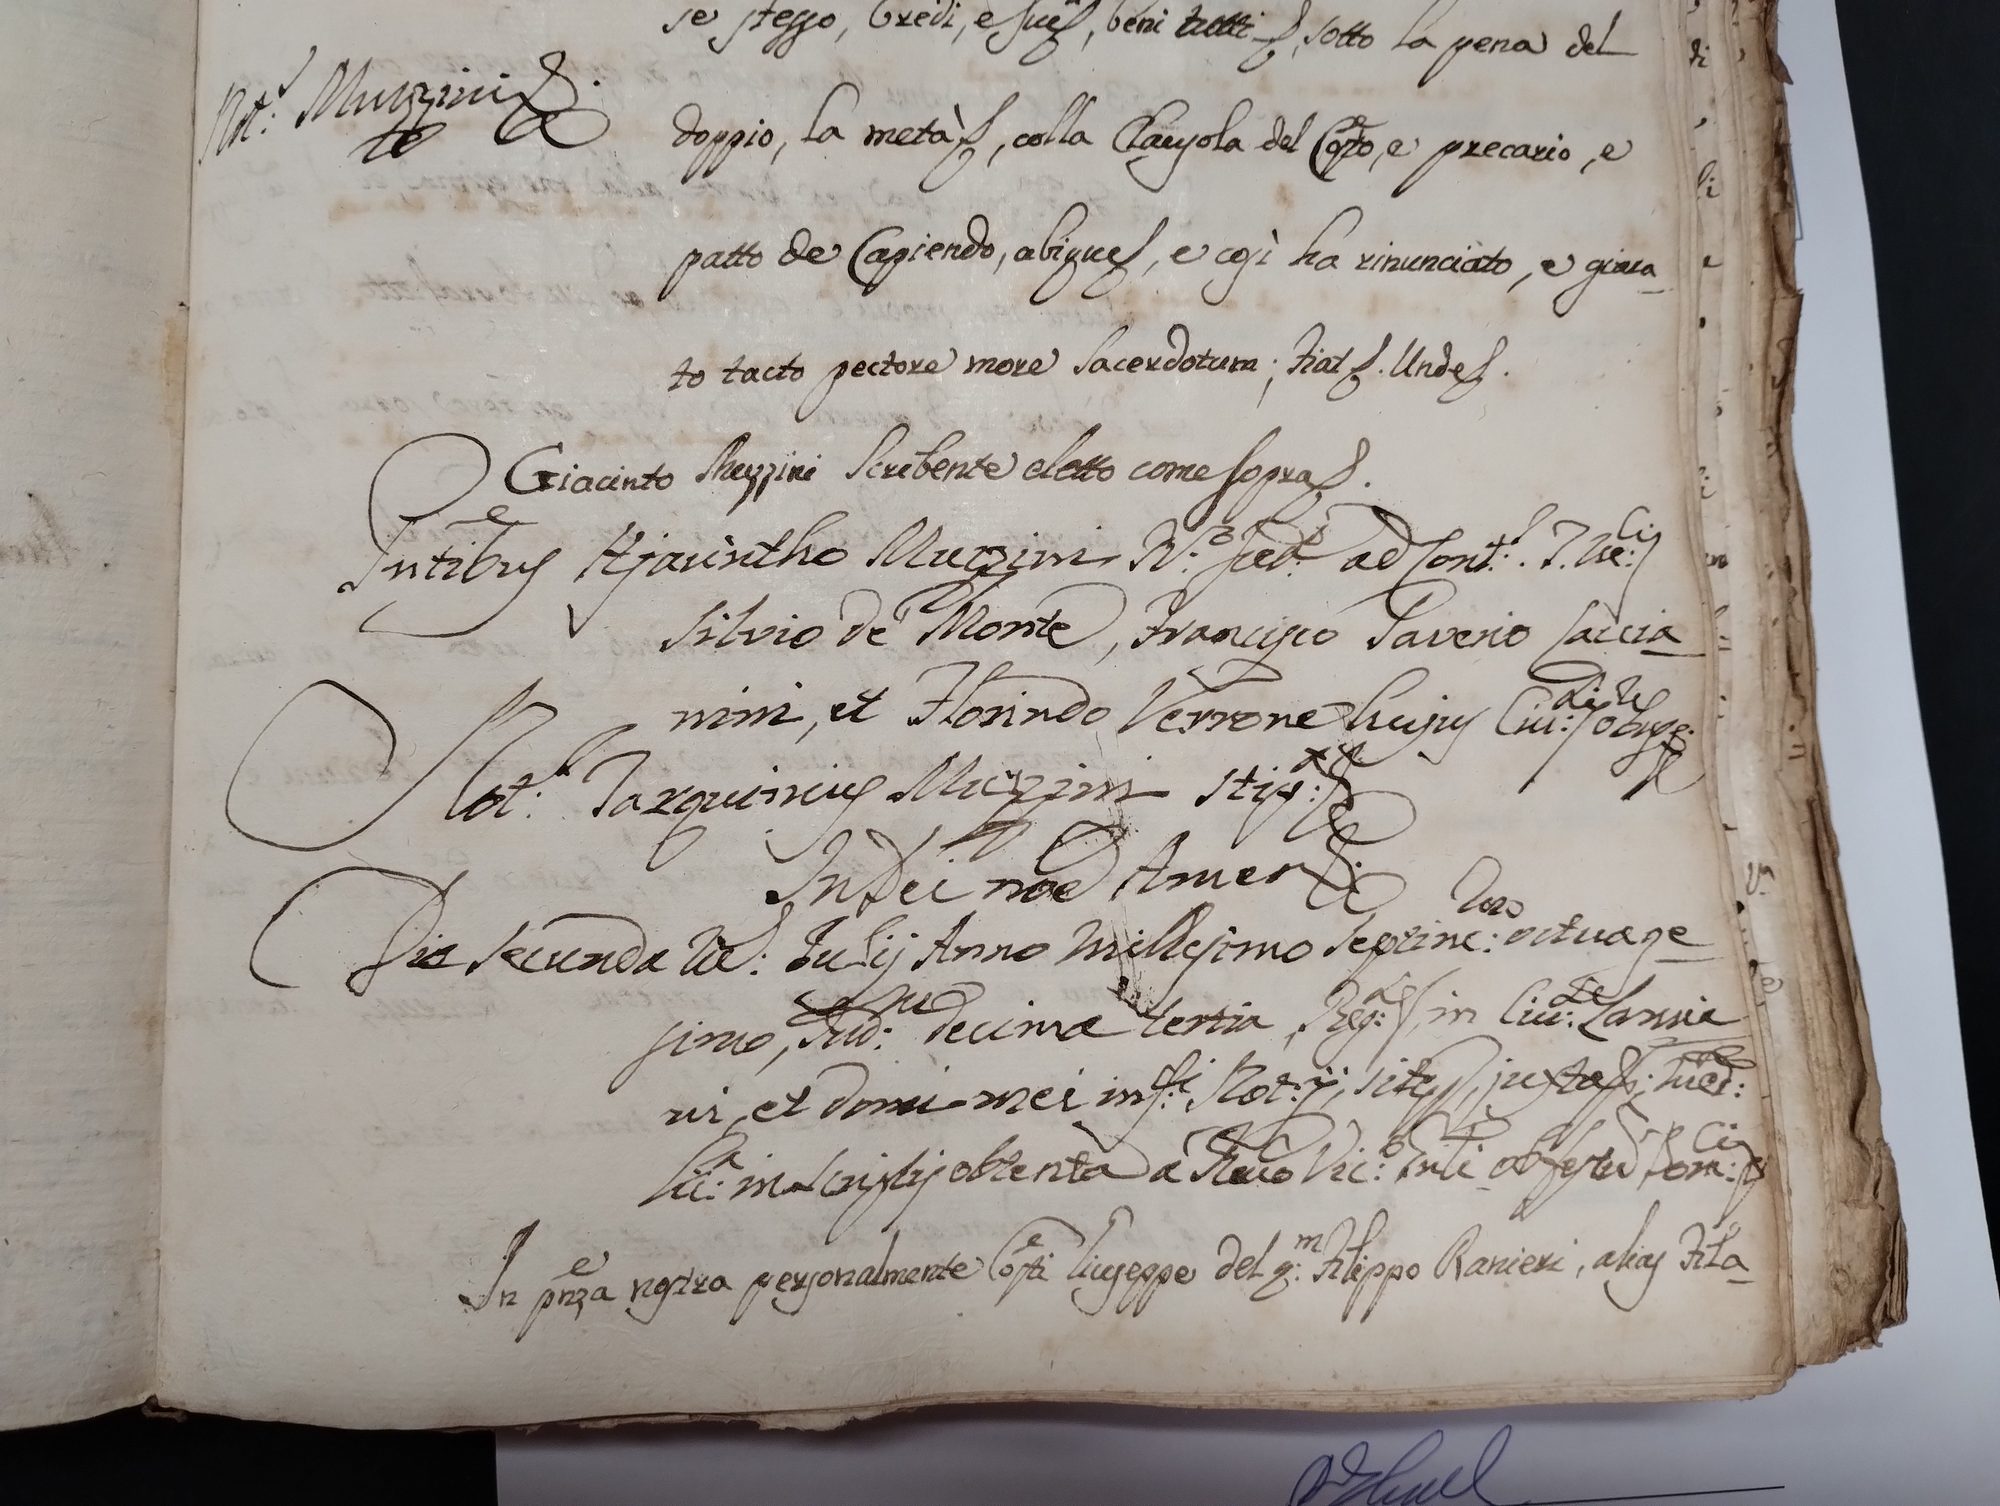 se stesso, Eredi, e suc, beni tutti, sotto la pena del
Not: Muzzini
doppio, la metà, colla Clausola del Costo, e precario, e
patto de Capiendo, abisque, e così ha rinunciato, e giura-
to tacto pectore more Sacerdotum; Fiat. Unde.
Giacinto Muzzini Scribente eletto come sopra.
Pntibus Hjacintho Muzzini Ro: ad Cont:
Silvio de Monte, Francisco Saverio Saccia-
nini, et Florindo Verrone hujus Civ:
Not: Tarquinius Muzzini stip:
In Dei noe Amen
Die secunda Ms: Julij Anno Millesimo Septinc:mo octuage-
simo, Ind:ne decima tertia, Reg:, in Civ:te Lancia-
ni, et domi mei inf:ti Not:ij, sites, juxta,
Lic:a in scriptis obtenta a Vic:o ob festu Dom:ci
In pnza nostra personalmente Costi Giuseppe del q:m Filippo Ranieri, alias Fila-